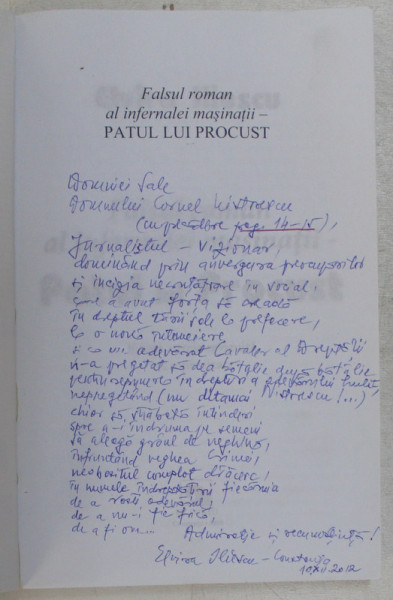 Falsul roman
al infernalei mașinații –
PATUL LUI PROCUST
Domniei Sale
Domnului Cornel Nistorescu
(cu plăcere pag. 14-15),
Jurnalistul – vizionar,
dominând prin anvergura preocupărilor
și incizia necruțătoare în social,
care a avut forța să creadă
în dreptul țării sale la prefacere,
la o nouă întemeiere
și ca un adevărat Cavaler al Dreptății
n-a pregetat să dea bătălie după bătălie
pentru repunerea în drepturi a
nepregetând (nu dltamai Nistorescu!...)
chiar să străbată întinderi
spre a-i îndruma pe semeni
să aleagă grâul de neghină,
înfruntând veghea Crimei,
neobositul complot drăcesc!
În numele îndreptățirii fiecăruia
de a rosti adevărul,
de a nu-i fie frică
de a fi om...
Admirație și recunoștință!
Elvira Iliescu – Constanța
10 XII 2012